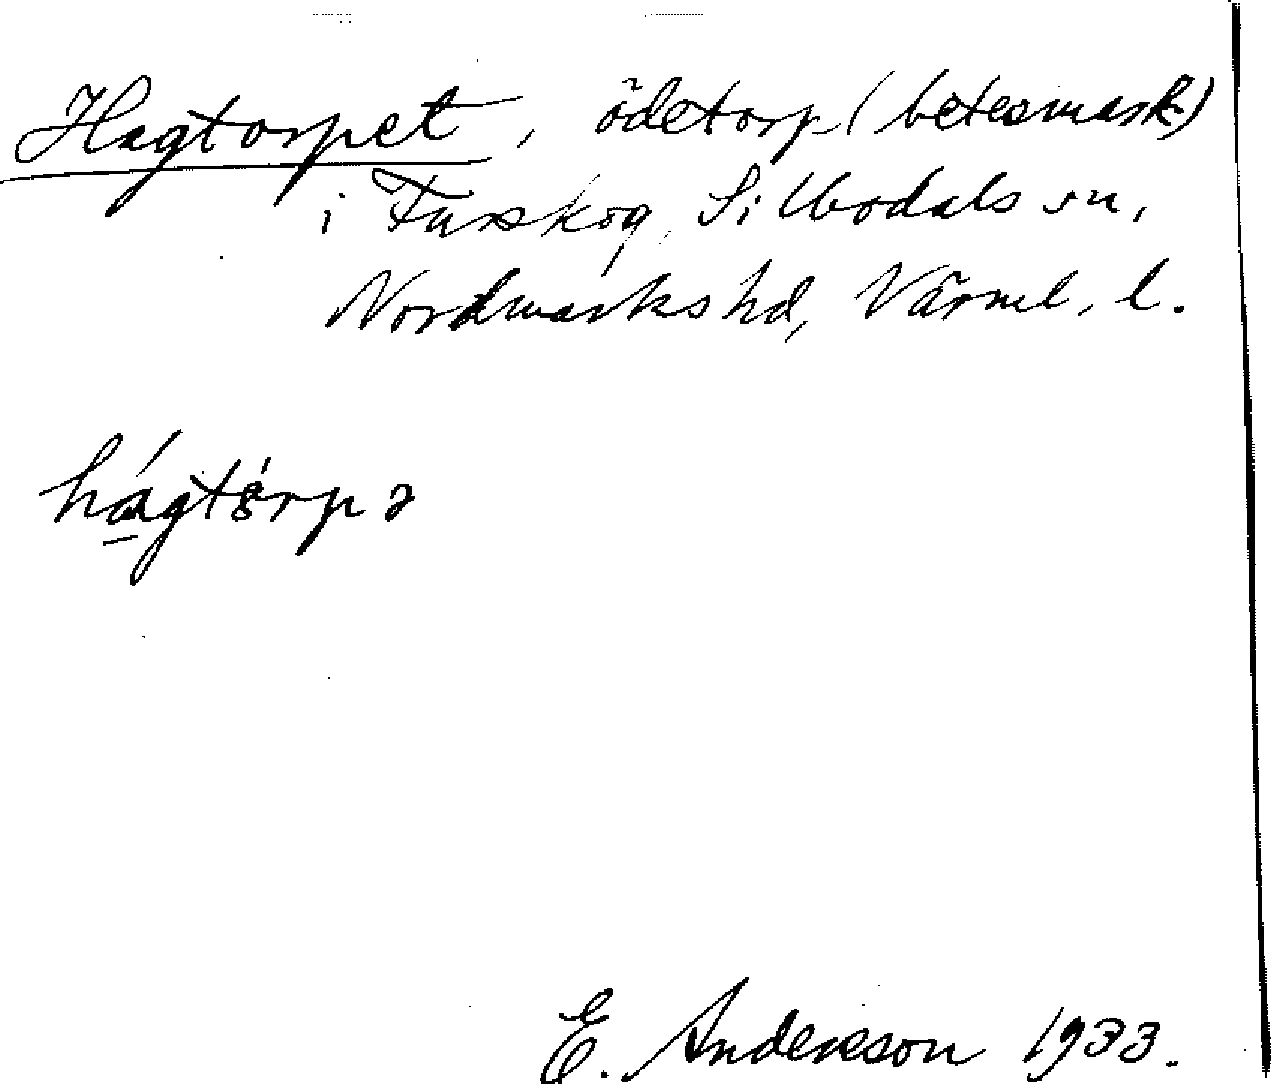 Hagtorpet, ödetorp (betesmark)
i Furskog, Silbodals sn,
Nordmarks hd, Värml. l.
hágtórpə
E. Anderson 1933.